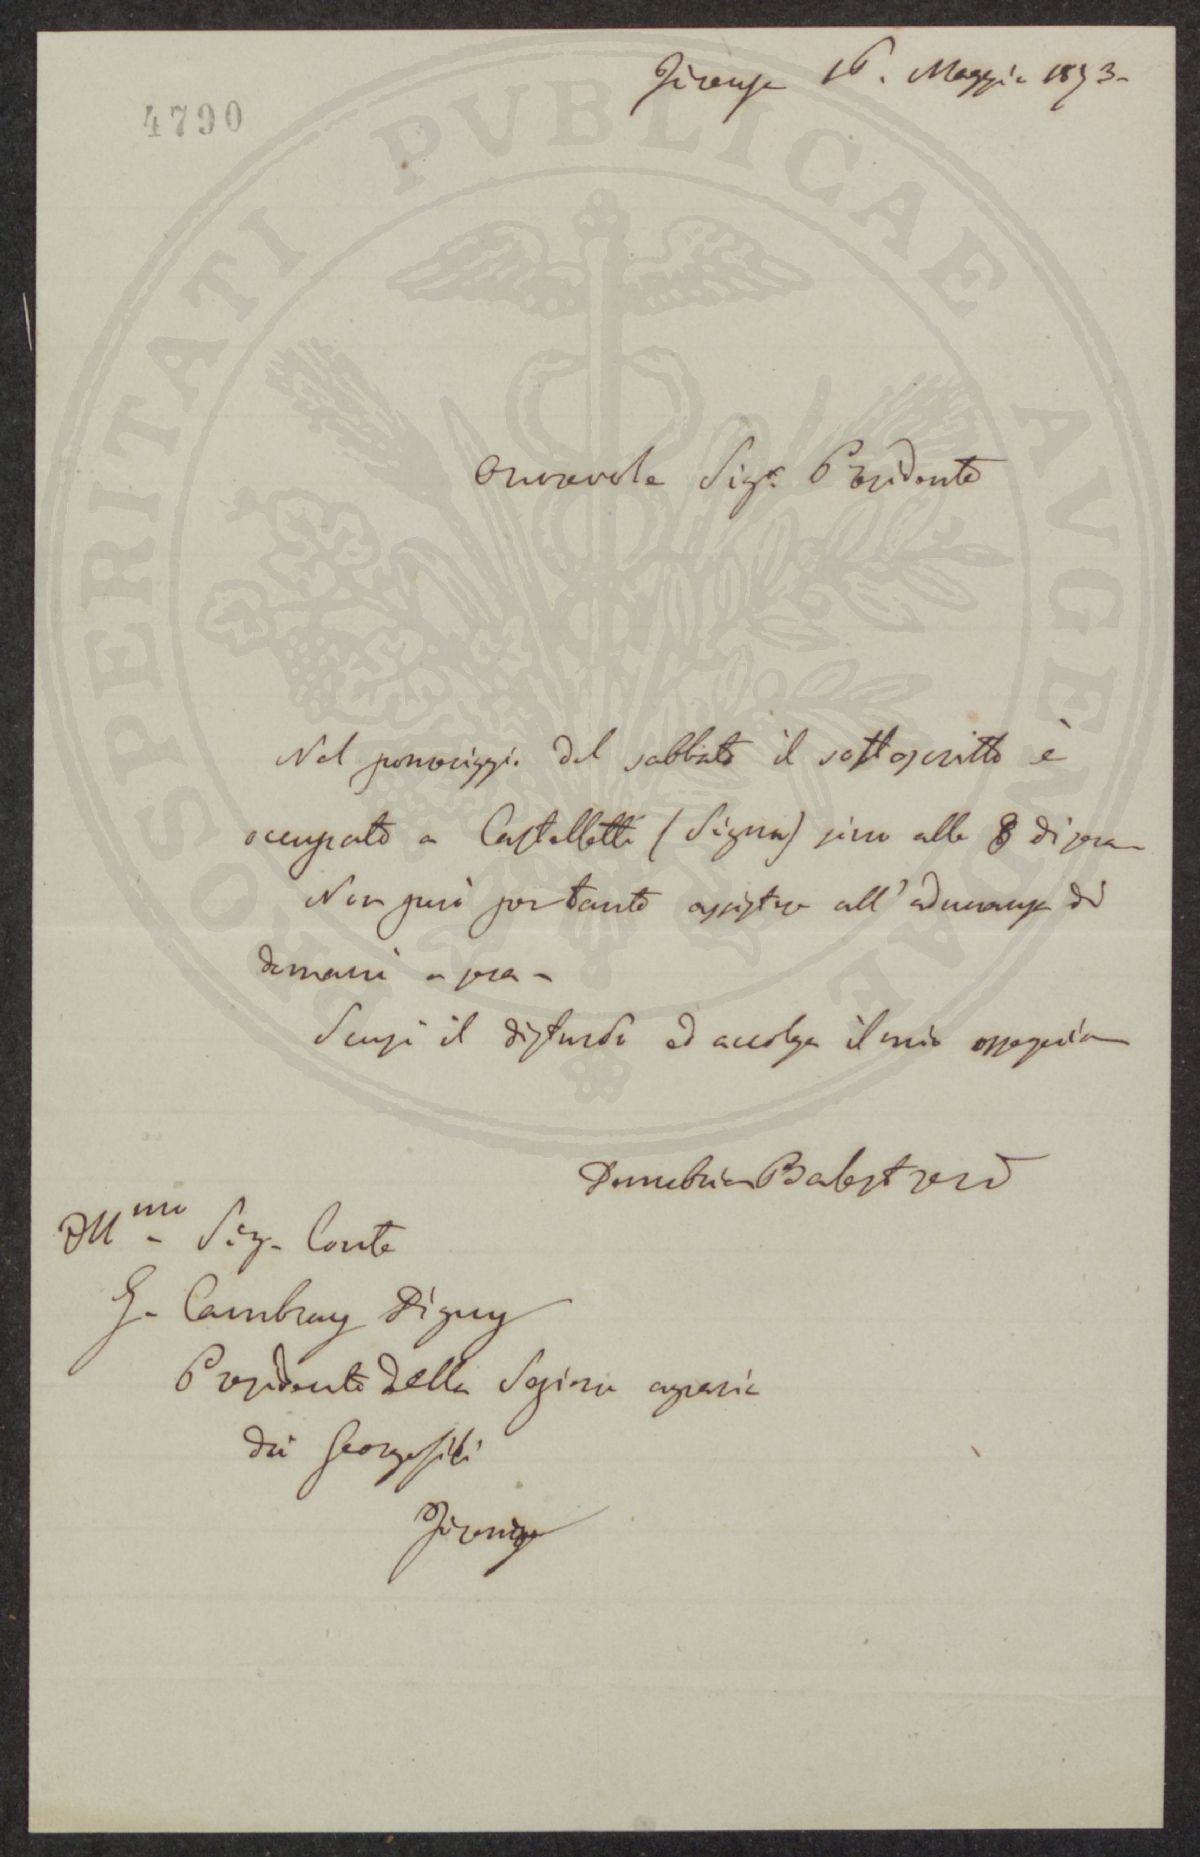 Firenze 16. Maggio 1873.
4790
PROSPERITATI PVBLICAE AVGENDAE
Onorevole Sigr. Presidente
Nel pomeriggio del sabbato il sottoscritto è
occupato a Castelletti (Signa) sino alle 8 di sera
Non può per tanto assistere all'adunanza di
domani a sera -
Scusi il disturbo ed accolga il mio ossequio
Balestreri
Illmo. Sig. Conte
G. Cambray Digny
Presidente della Sezione agraria
dei Georgofili
Firenze